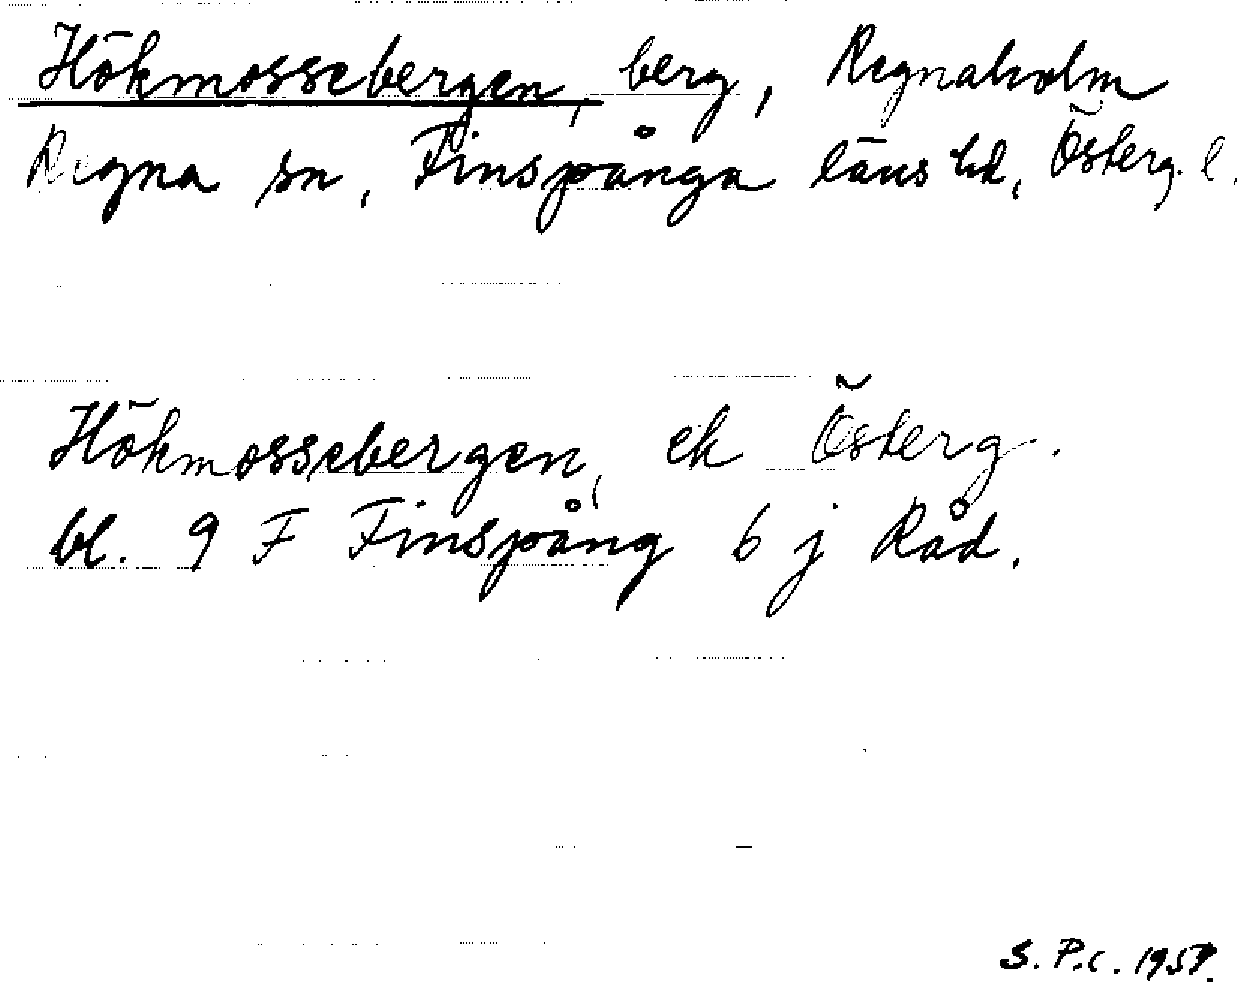 Hökmossebergen, berg, Regnaholm
Regna sn, Finspånga läns hd, Österg. l.
Hökmossebergen, ek Österg.
bl. 9 F Finspång 6 j Råd.
S. P.c.